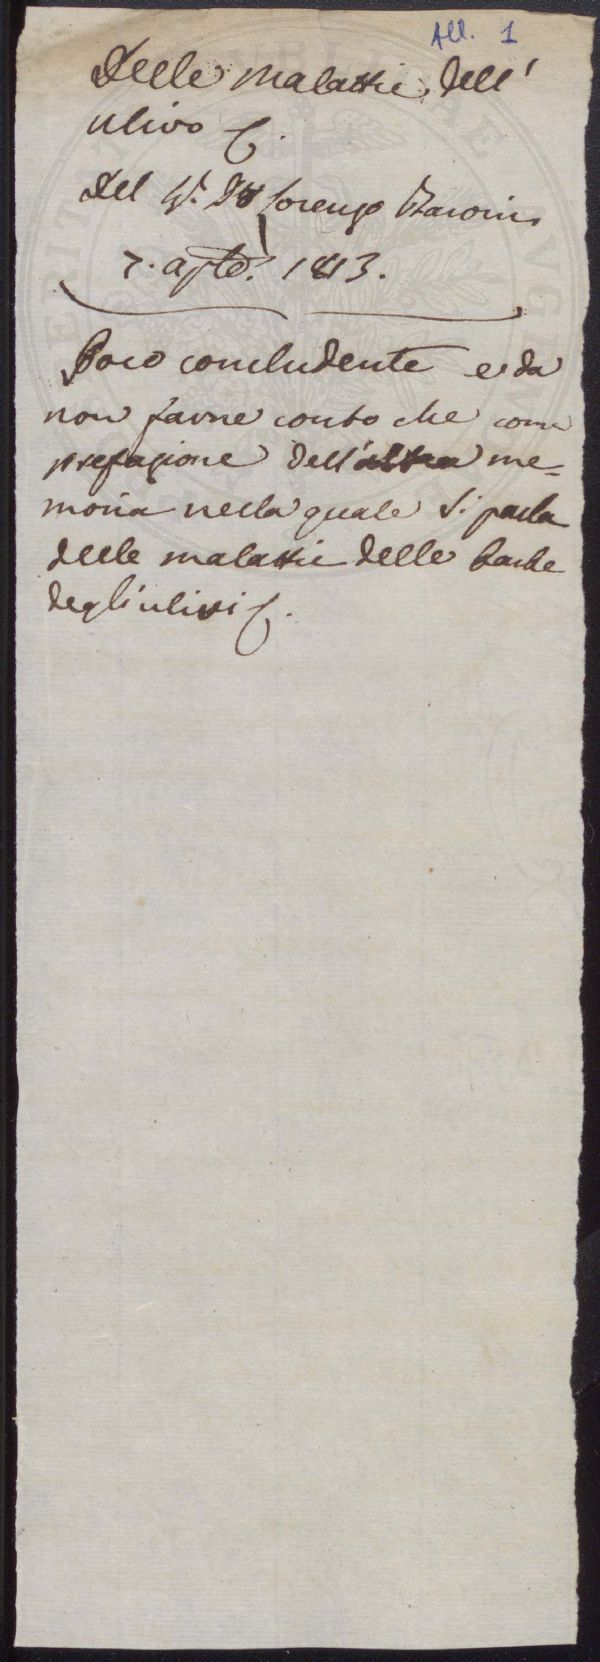 All. 1
Delle malattie dell'
ulivo &.
Del S.r D.r Lorenzo Baroni
7. agto. 1813.
Poco concludente e da
non farne conto che come
prefazione dell'altra me=
moria nella quale si parla
delle malattie delle barbe
degli ulivi &.